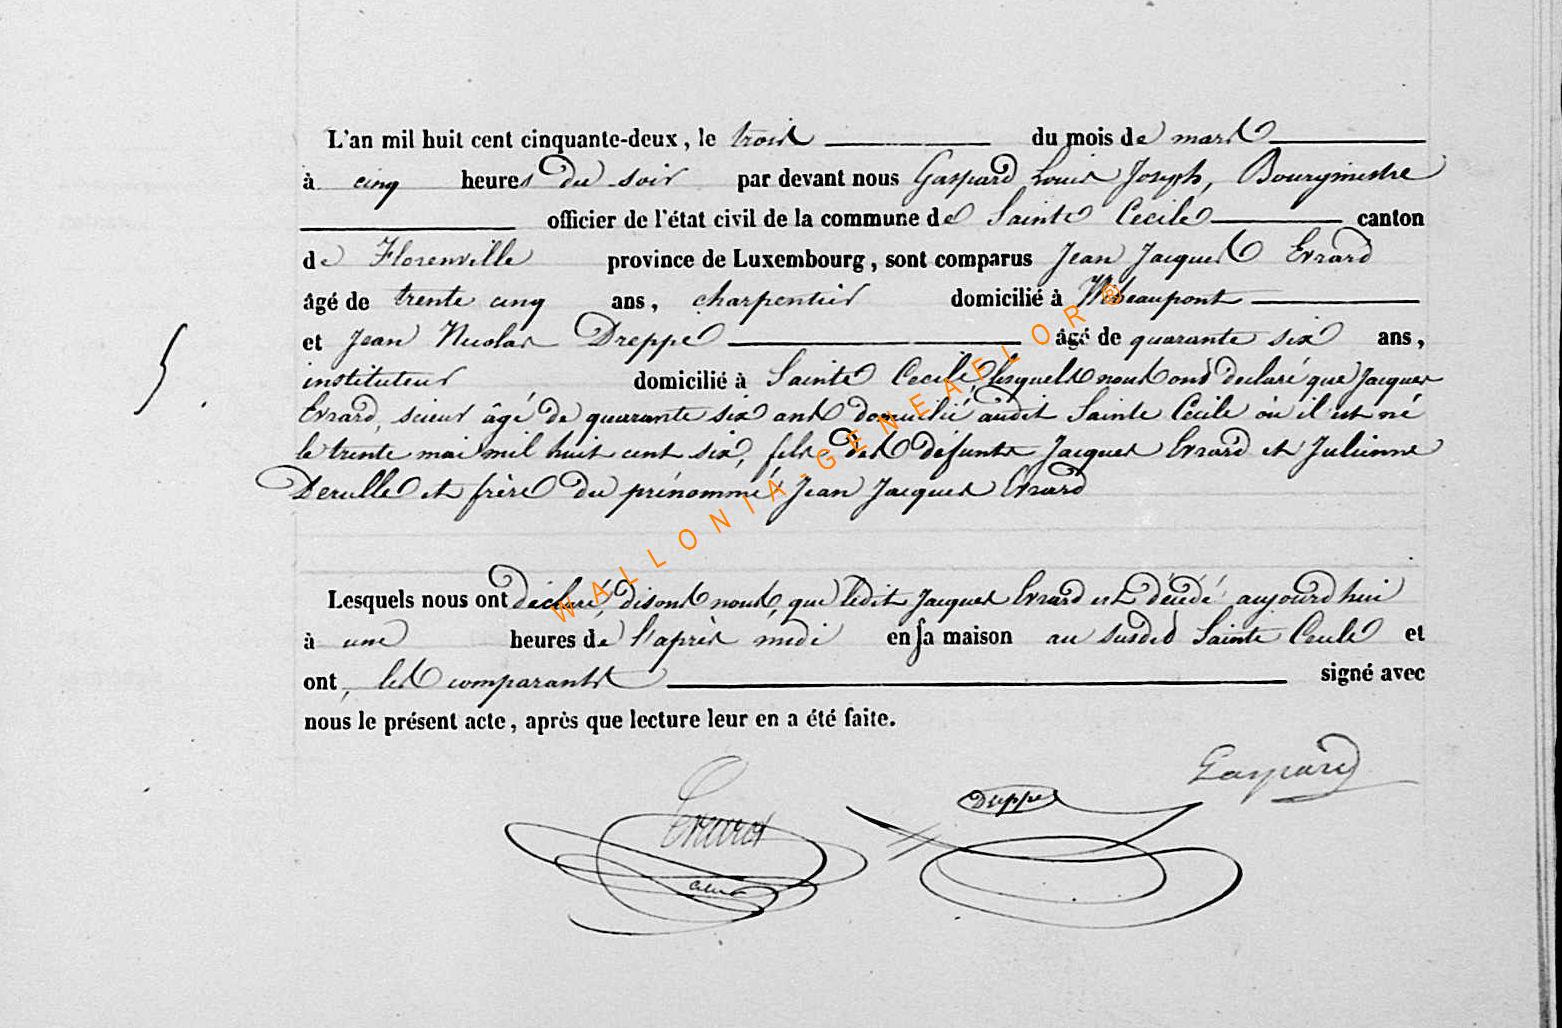 L'an mil huit cent cinquante-deux, le trois du mois de mars
à cinq heures du soir par devant nous Gaspard Louis Joseph, Bourgmestre
officier de l'état civil de la commune de Sainte Cecile canton
de Florenville province de Luxembourg, sont comparus Jean Jacques Evrard
âgé de trente cinq ans, charpentier domicilié à
et Jean Nicolas Dreppe âgé de quarante six ans,
instituteur domicilié à Sainte Cecile, lesquels nous ont declaré que Jacques
Evrard, scieur âgé de quarante six ans domicilié audit Sainte Cécile où il est né
le trente mai mil huit cent six, fils des défunts Jacques Evrard et Julienne
Derulle et frère du prénommé Jean Jacques Evrard
Lesquels nous ont déclaré, disons nous, que ledit Jacques Evrard est décédé aujourd'hui
à une heures de l'après midi en sa maison au susdit Sainte Cecile et
ont, les comparants signé avec
nous le présent acte, après que lecture leur en a été faite.
Gaspard
Dreppe
Evrard
5
WALLONIA-GENEAELOR®